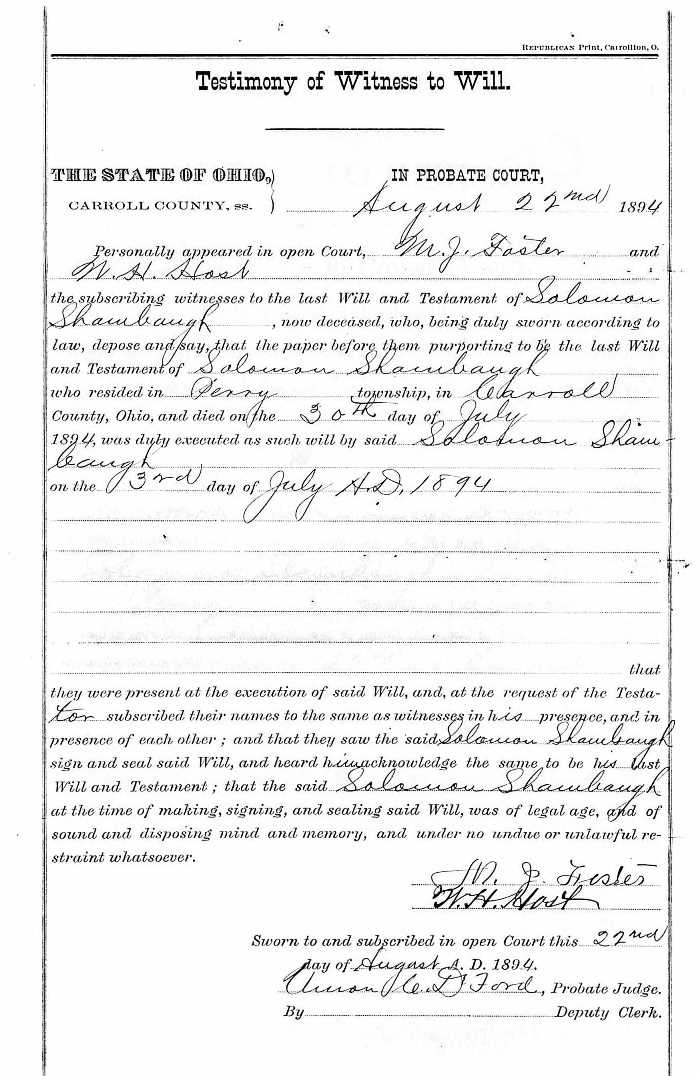 REPUBLICAN Print, Carrollton, O.
Testimony of Witness to Will.
THE STATE OF OHIO, } IN PROBATE COURT,
CARROLL COUNTY, ss. } August 22nd 1894
Personally appeared in open Court, M. J. Foster and
W. H. Host
the subscribing witnesses to the last Will and Testament of Solomon
Shambaugh , now deceased, who, being duly sworn according to
law, depose and say, that the paper before them purporting to be the last Will
and Testament of Solomon Shambaugh
who resided in Perry township, in Carroll
County, Ohio, and died on the 30th day of July
1894, was duty executed as such will by said Solomon Sham-
baugh
on the 3rd day of July A.D. 1894
that
they were present at the execution of said Will, and, at the request of the Testa-
tor subscribed their names to the same as witnesses in his presence, and in
presence of each other ; and that they saw the said Solomon Shambaugh
sign and seal said Will, and heard him acknowledge the same to be his last
Will and Testament ; that the said Solomon Shambaugh
at the time of making, signing, and sealing said Will, was of legal age, and of
sound and disposing mind and memory, and under no undue or unlawful re-
straint whatsoever.
M. J. Foster
W. H. Host
Sworn to and subscribed in open Court this 22nd
day of August A. D. 1894.
C. D. Ford, Probate Judge.
By Deputy Clerk.